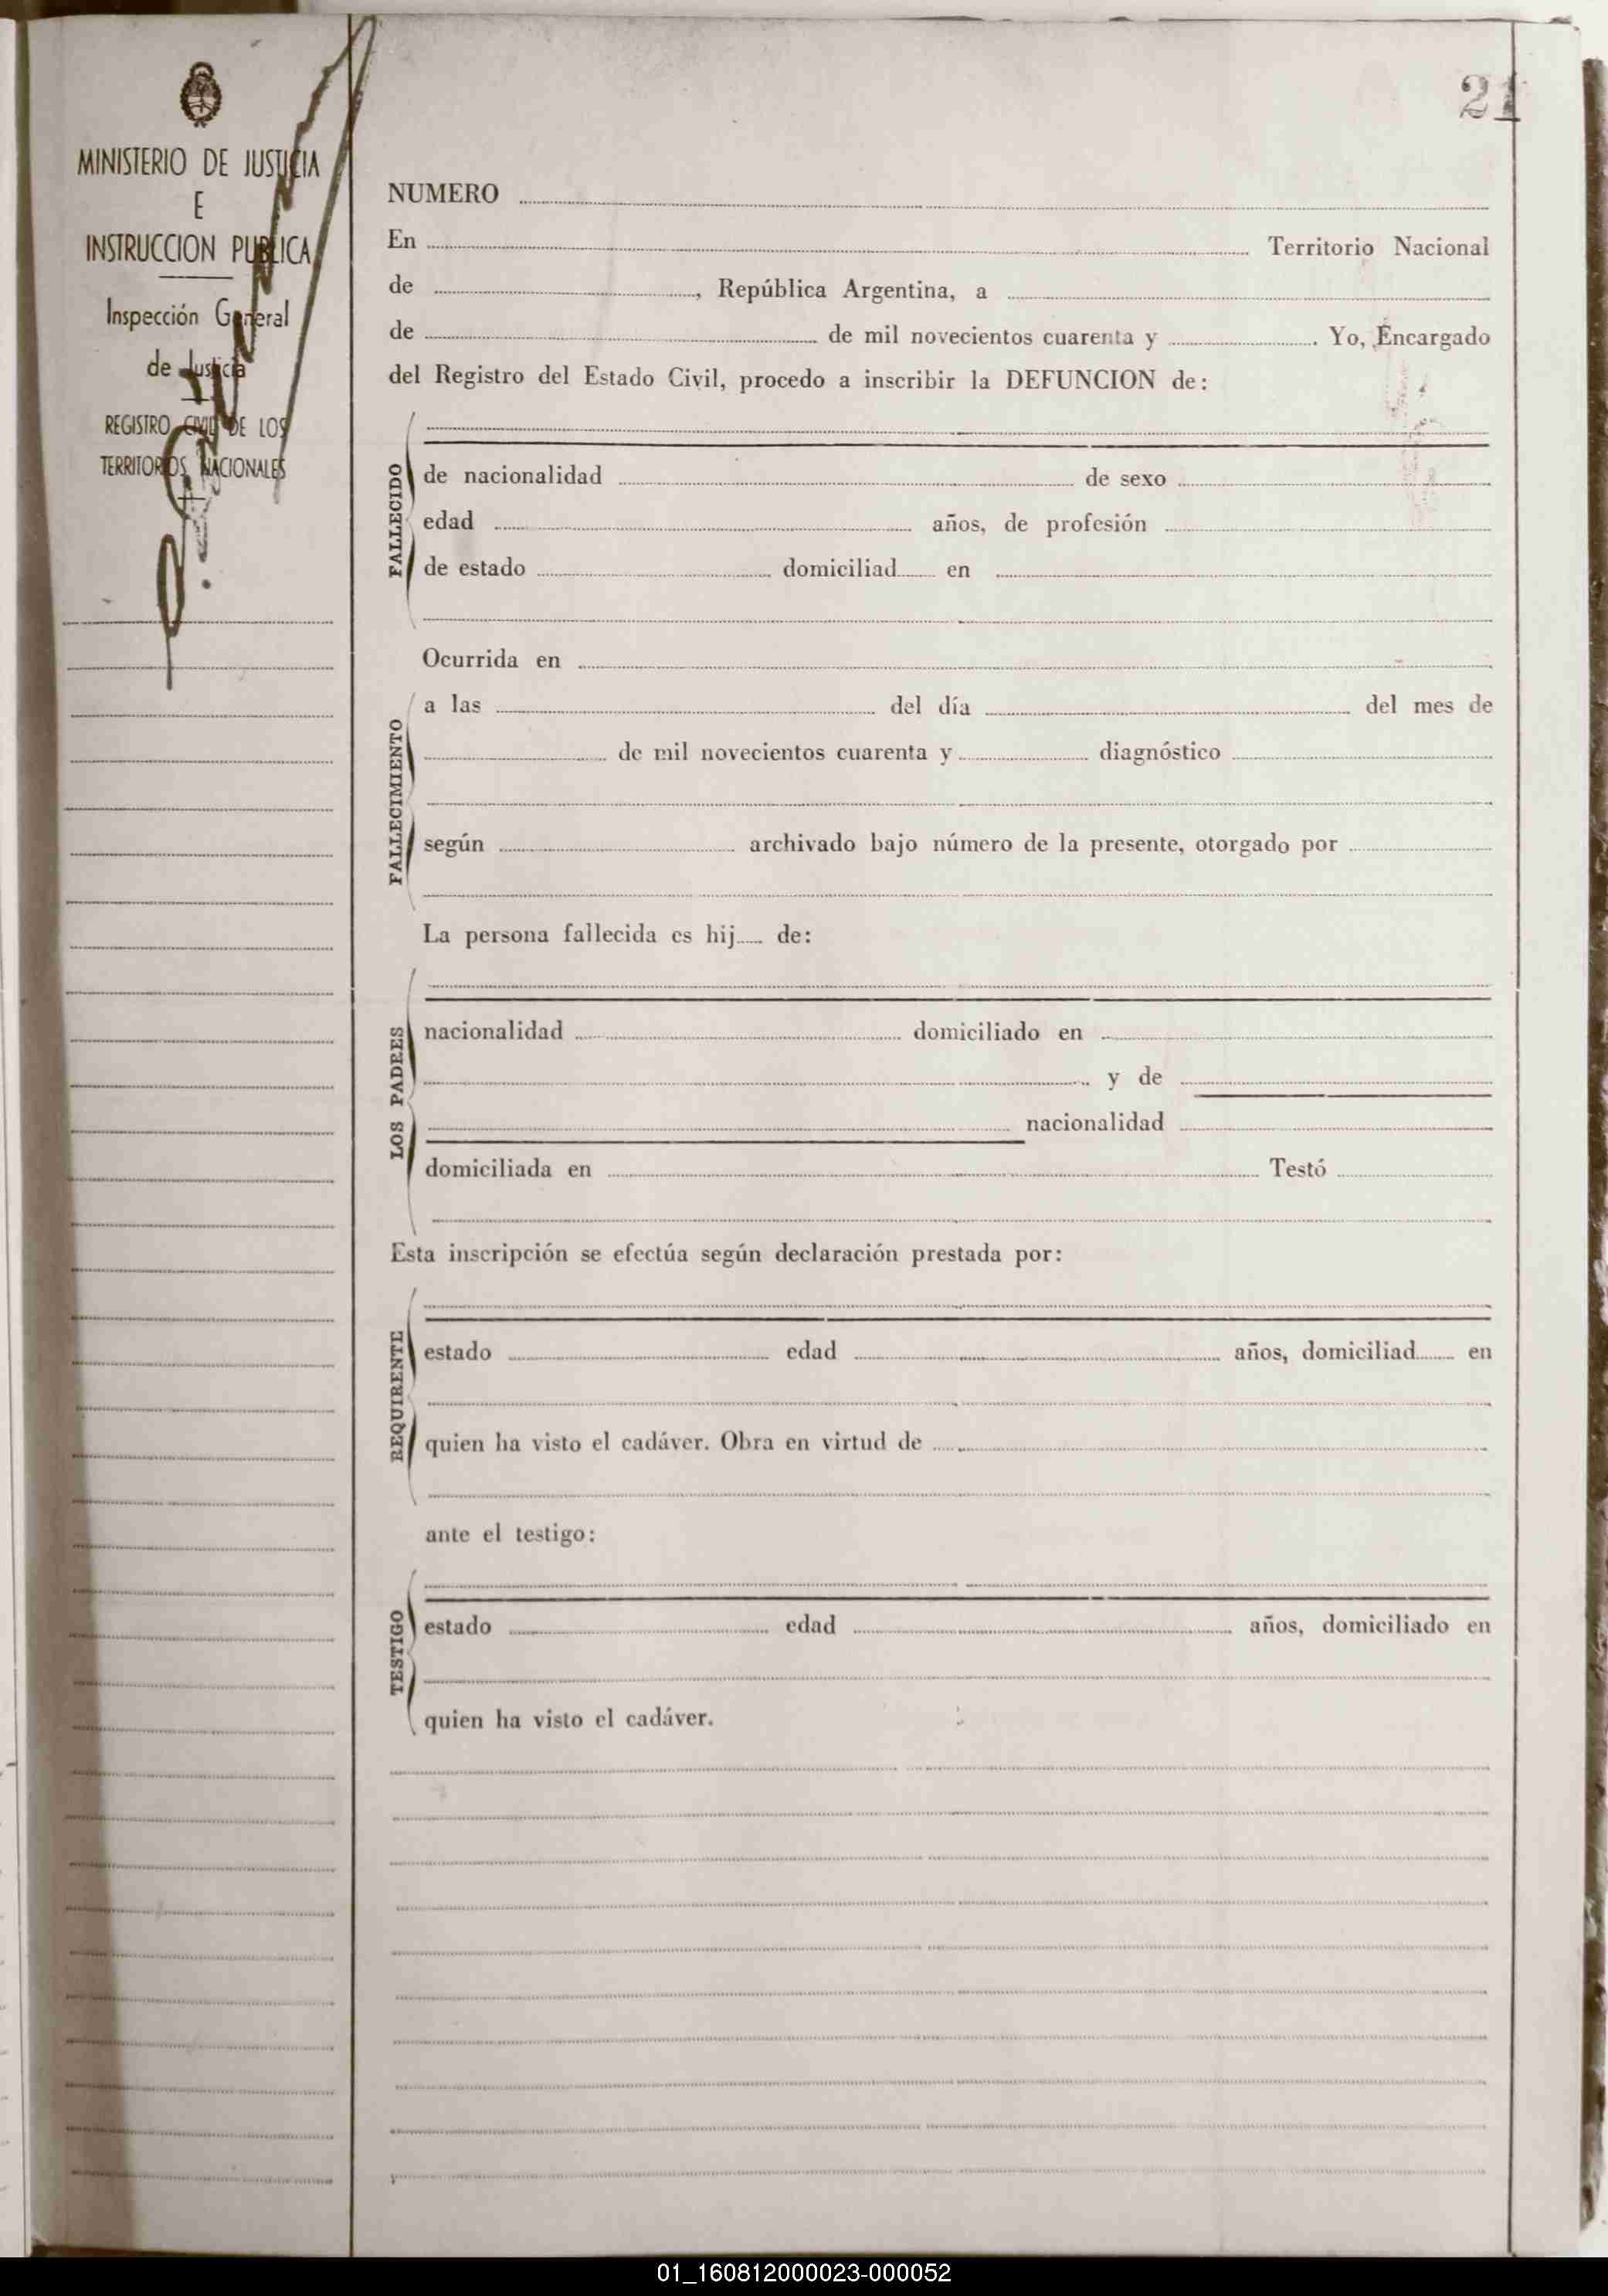 21
MINISTERIO DE JUSTICIA
E
INSTRUCCION PUBLICA
Inspección General
de Justicia
REGISTRO CIVIL DE LOS
TERRITORIOS NACIONALES
NUMERO
En Territorio Nacional
de , República Argentina, a
de de mil novecientos cuarenta y . Yo, Encargado
del Registro del Estado Civil, procedo a inscribir la DEFUNCION de:
FALLECIDO
de nacionalidad de sexo
edad años, de profesión
de estado domiciliad en
Ocurrida en
FALLECIMIENTO
a las del día del mes de
de mil novecientos cuarenta y diagnóstico
según archivado bajo número de la presente, otorgado por
La persona fallecida es hij de:
LOS PADRES
nacionalidad domiciliado en
y de
nacionalidad
domiciliada en Testó
Esta inscripción se efectúa según declaración prestada por:
REQUIRENTE
estado edad años, domiciliad en
quien ha visto el cadáver. Obra en virtud de
ante el testigo:
TESTIGO
estado edad años, domiciliado en
quien ha visto el cadáver.
01_160812000023-000052